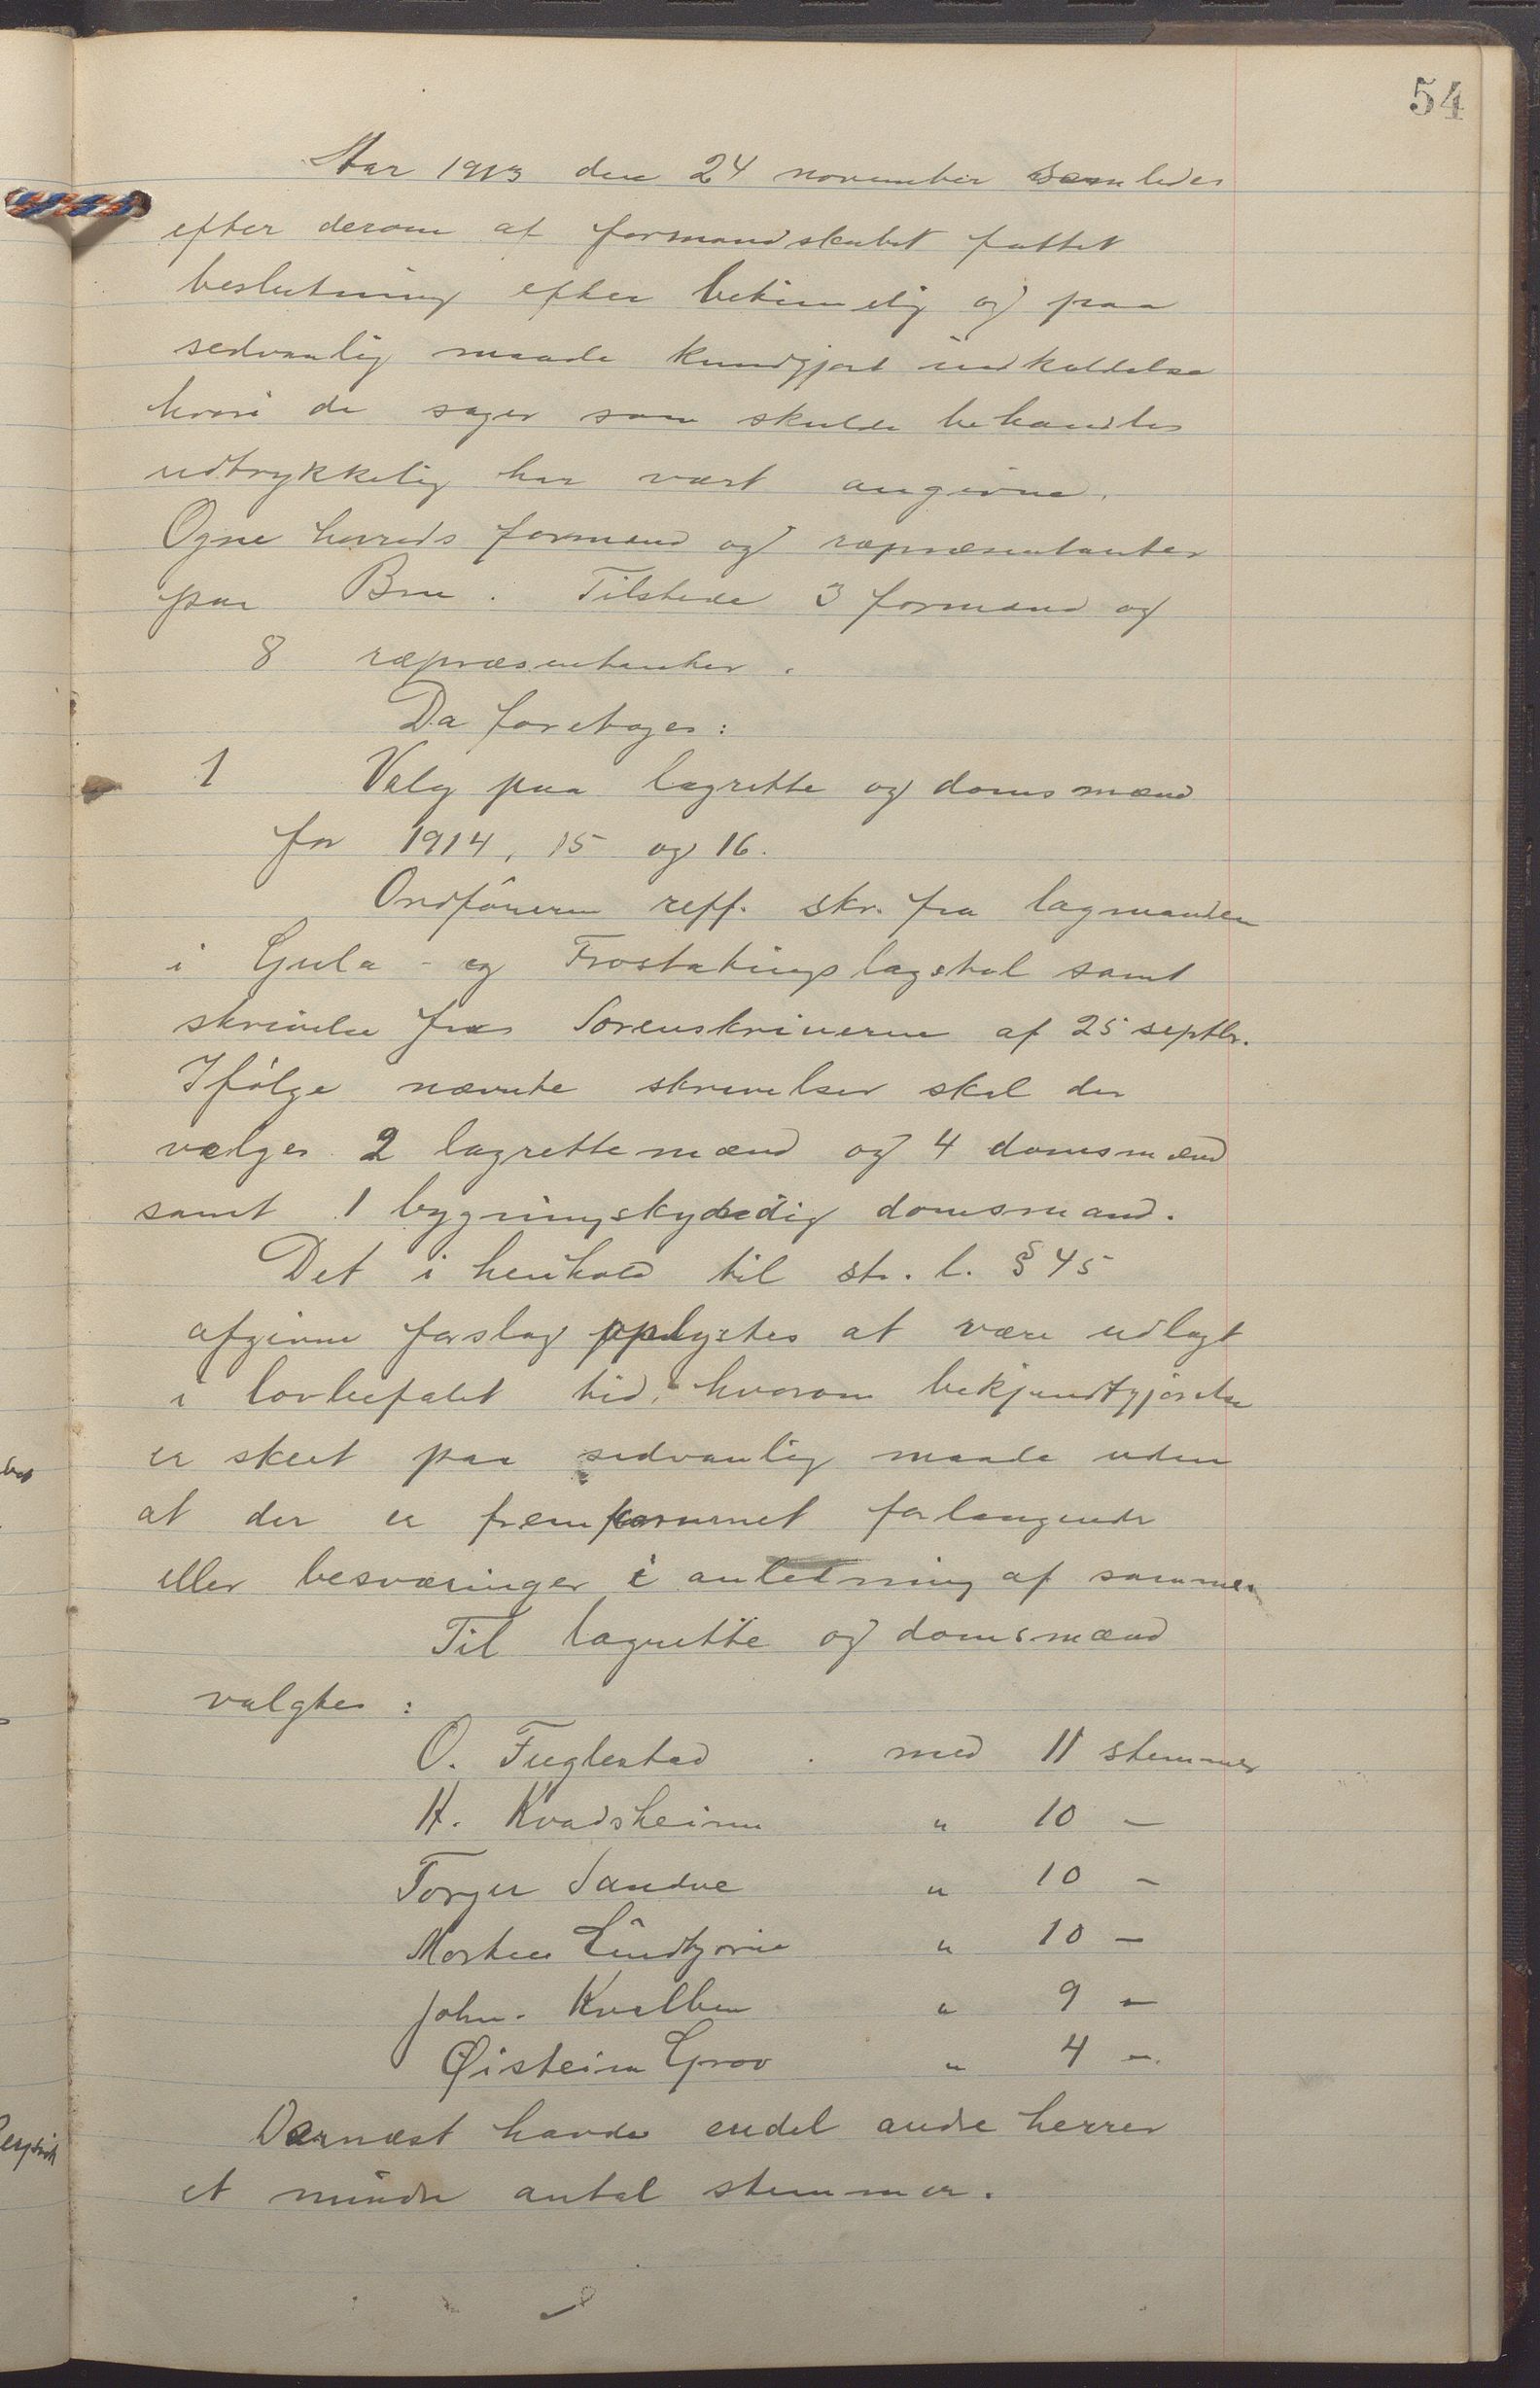 54
Aar 1913 den 24 november samledes
efter derom af formandskabet fattet
beslutning efter betimelig og paa
sedvanlig maade kundgjort indkaldelse
hvori de sager som skulde behandles
udtrykkelig har vært angivne.
Ogne herreds formænd og repræsentanter
paa Bru. Tilstede 3 formænd og
8 repræsentanter.
Da foretoges:
1 Valg paa lagrette og domsmænd
for 1914, 15 og 16.
Ordføreren reff. skr. fra lagmanden
i Gula- og Frostatings lagstol samt
skrivelse fra Sorenskriveren af 25 septbr.
Ifølge nævnte skrivelser skal der
vælges 2 lagrettemænd og 4 domsmænd
samt 1 bygningskyndig domsmand.
Det i henhold til str. l. § 45
afgivne forslag oplystes at være udlagt
i lovbefalet tid, hvorom bekjendtgjørelse
er skeet paa sedvanlig maade uden
at der er fremkommet forlangende
eller besværinger i anledning af samme.
Til lagrette og domsmænd
valgtes:
O. Fuglestad . med 11 stemmer
H. Kvadsheim " 10 —
Torger Sandve " 10 —
Morten Lindtjørn " 10 —
John. Kvalben " 9 —
Øistein Grov " 4 —.
Dernæst havde endel andre herrer
et mindre antal stemmer.